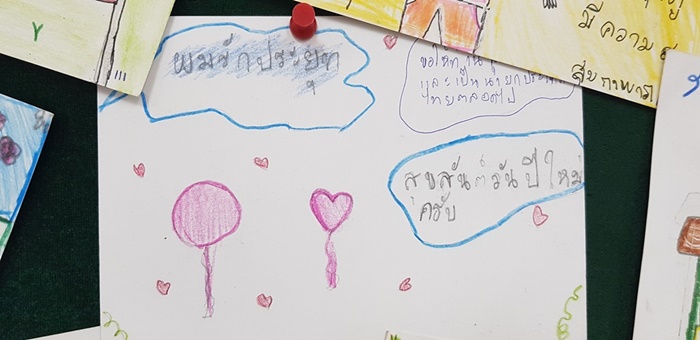 ผมรักประยุท
ขอให้ท่าน
และเป็นนายก
ไทยตลอดไป
สุขสันต์วันปีใหม่
ครับ
มีความ
สุขภาพ
Y